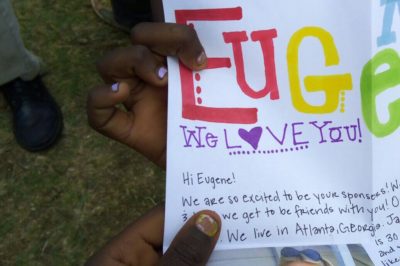 EUGENE
EUGe
We LOVE You!
Hi Eugene!
We are so excited to be your sponsers! W
we get to be friends with you! O
We live in Atlanta, Georgia. Ja
is 30
and
like